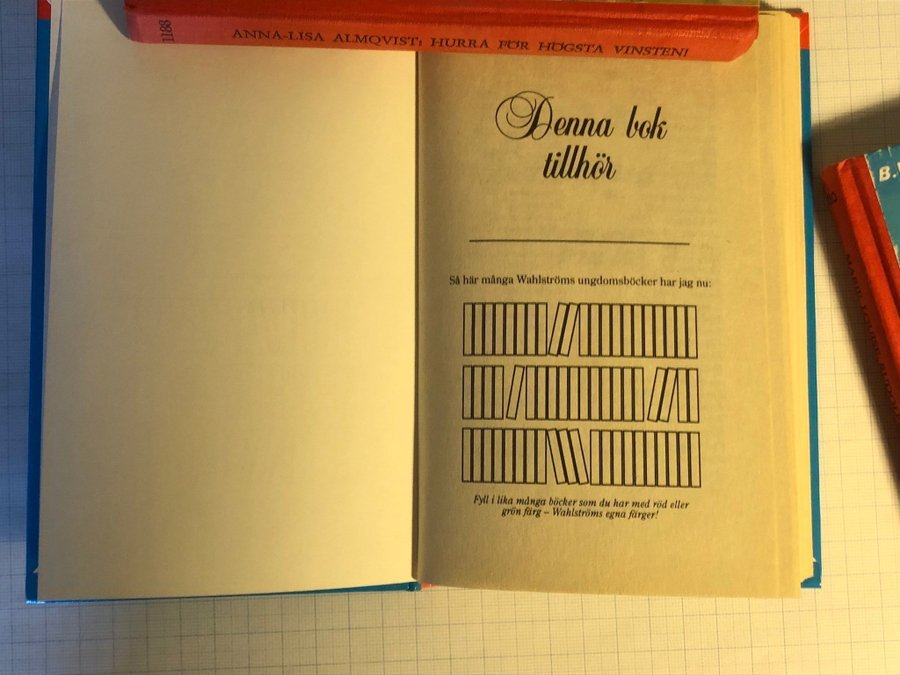 1188 ANNA-LISA ALMQVIST: HURRA FÖR HÖGSTA VINSTEN!
Denna bok
tillhör
Så här många Wahlströms ungdomsböcker har jag nu:
Fyll i lika många böcker som du har med röd eller
grön färg – Wahlströms egna färger!
B.